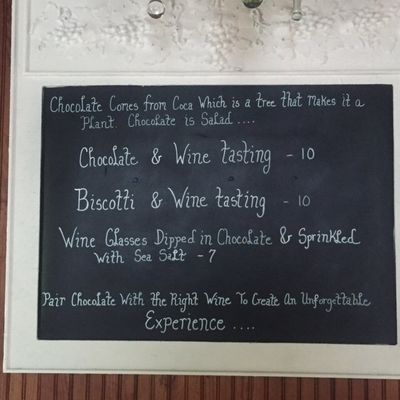 Chocolate Comes from Coca Which is a tree that makes it a
Plant. Chocolate is Salad....
Chocolate & Wine tasting - 10
Biscotti & Wine tasting - 10
Wine Glasses Dipped in Chocolate & Sprinkled
with Sea Salt - 7
Pair Chocolate With the Right Wine To Create An Unforgettable
Experience ....